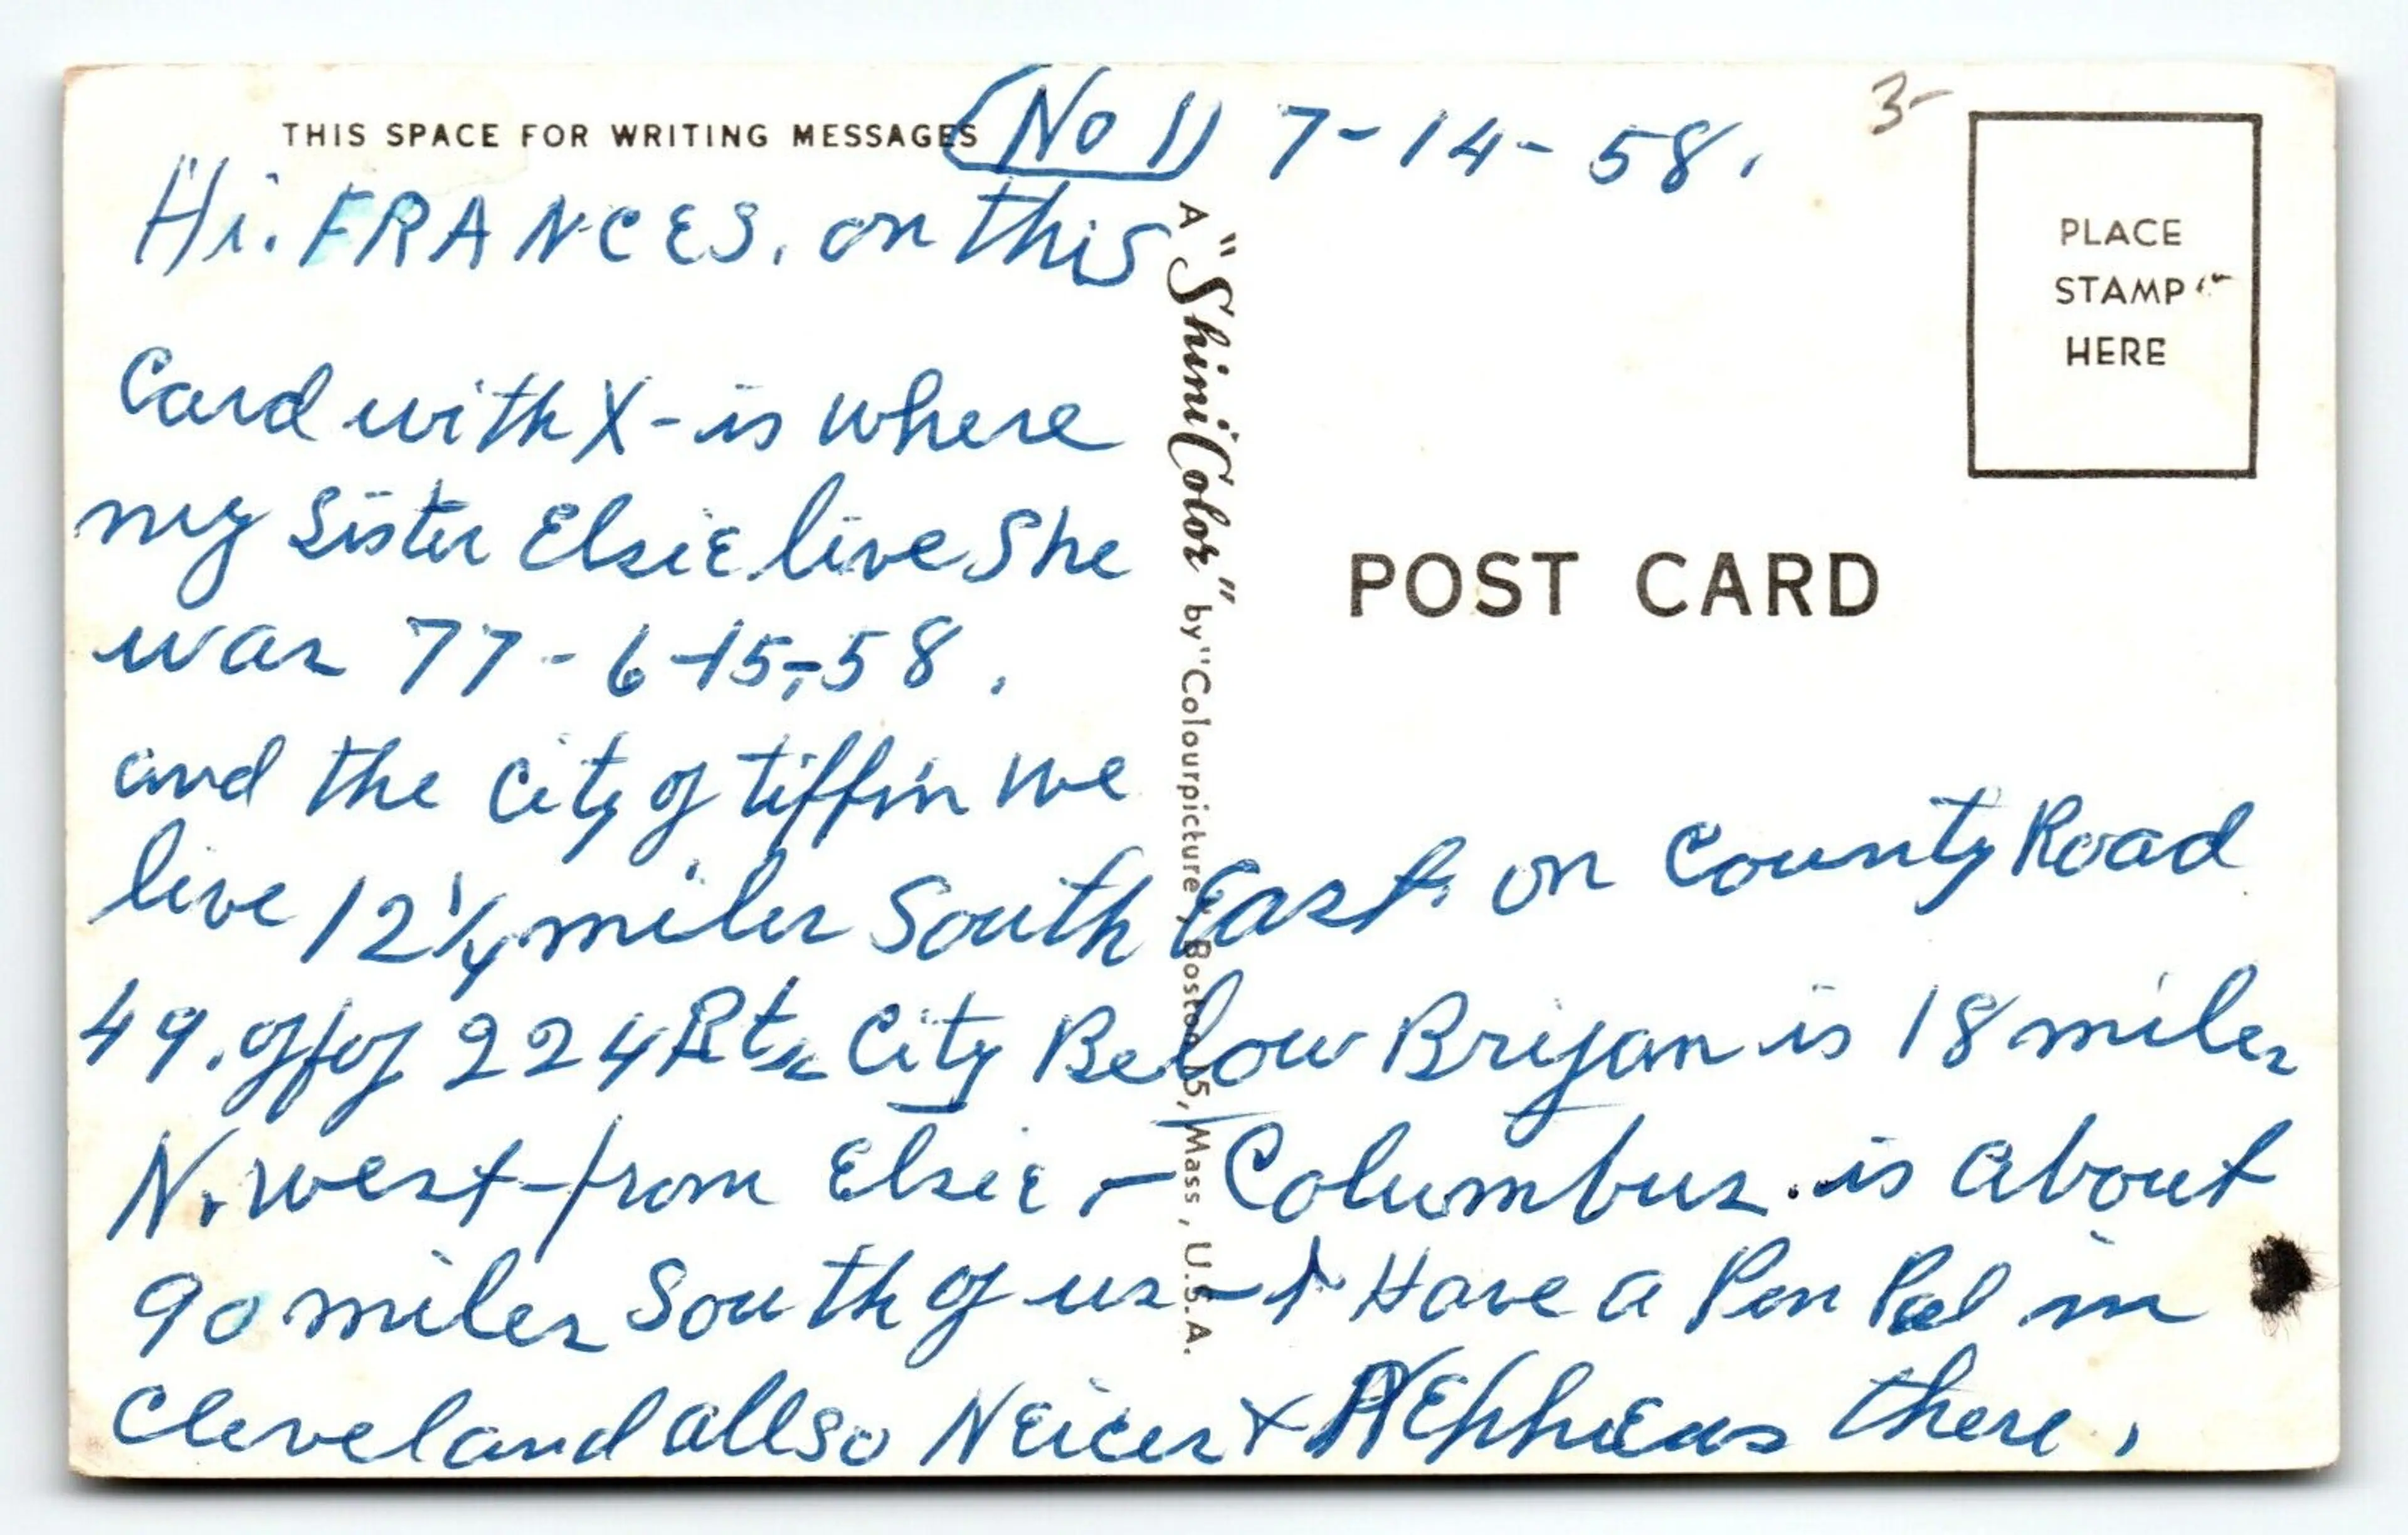 THIS SPACE FOR WRITING MESSAGES
(No 1) 7-14-58.
3-
Hi. FRANCES. on this
Card with X - is where
my Sister Elsie live She
was 77 - 6-15-58.
and the City of tiffin we
live 12 1/4 miles South East. on County Road
49. off of 224 Rt. City Below Briyan is 18 miles
N. west-from Elsie - Columbus. is about
90 miles South of us - I Have a Pen Pal in
Cleveland allso Neices + NEphEws there.
PLACE
STAMP
HERE
POST CARD
A "ShiniColor" by "Colourpicture", Boston 15, Mass, U.S.A.